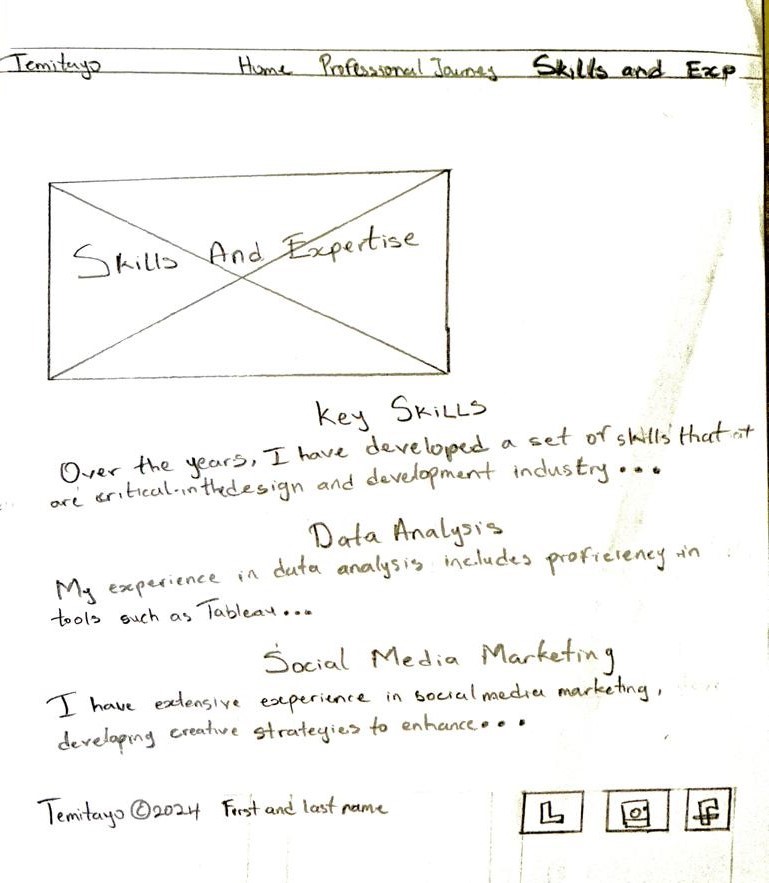 Temitayo Home Professional Journey Skills and Exp
Skills And Expertise
Key SKILLS
Over the years, I have developed a set of skills that
are critical in the design and development industry...
Data Analysis
My experience in data analysis includes proficiency in
tools such as Tableau...
Social Media Marketing
I have extensive experience in social media marketing,
developing creative strategies to enhance...
Temitayo ©2024 First and last name L f